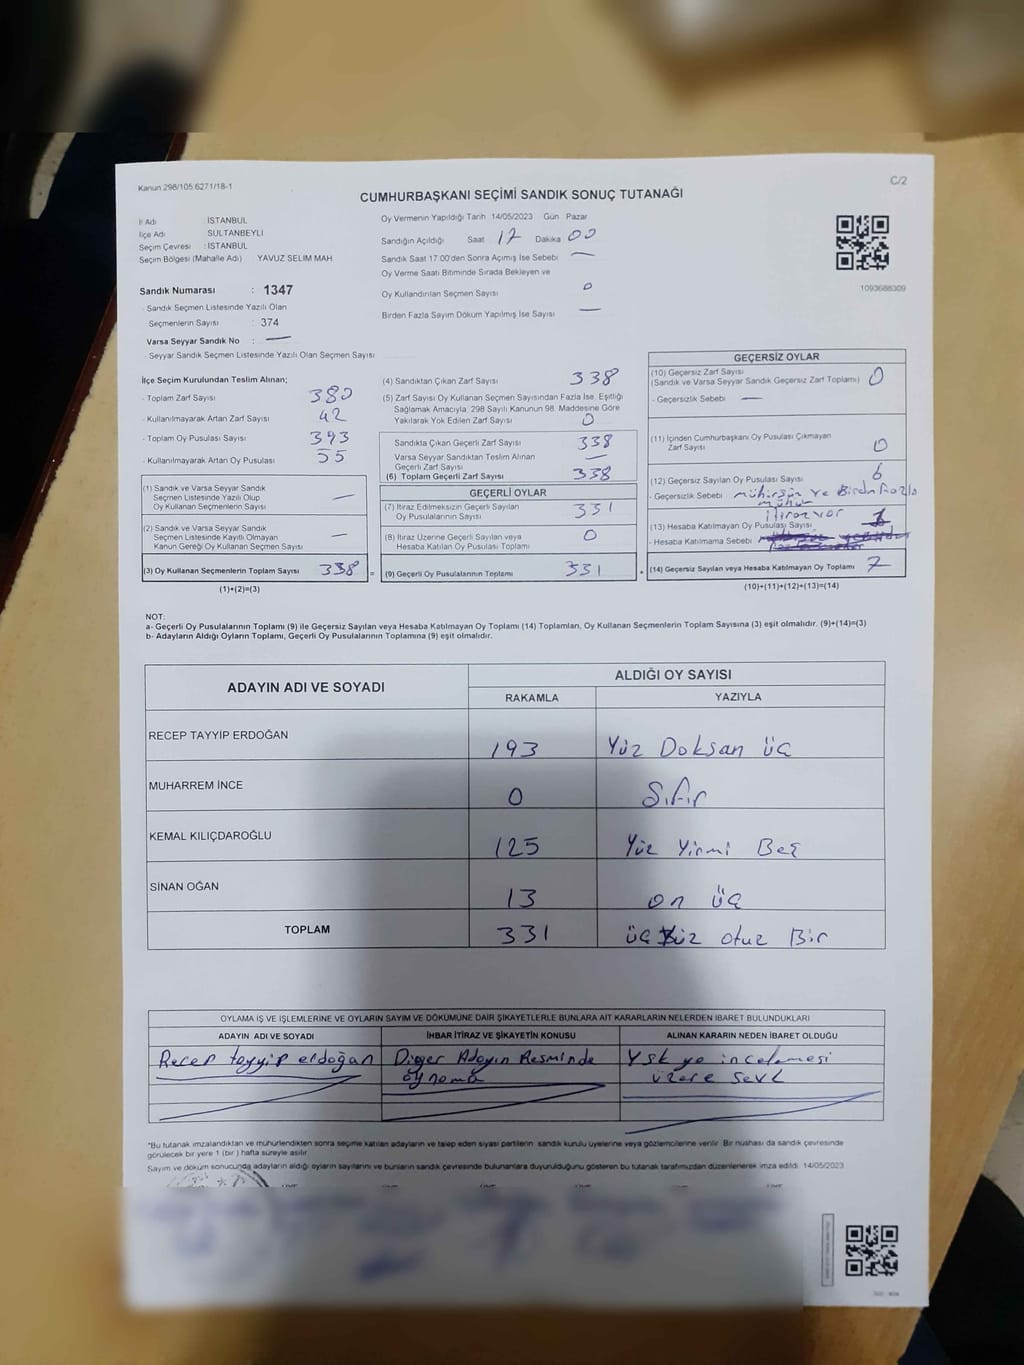 Kanun 298/105,6271/18-1
C/2
CUMHURBAŞKANI SEÇİMİ SANDIK SONUÇ TUTANAĞI
İl Adı İSTANBUL
İlçe Adı SULTANBEYLİ
Seçim Çevresi : İSTANBUL
Seçim Bölgesi (Mahalle Adı) YAVUZ SELİM MAH.
Sandık Numarası : 1347
- Sandık Seçmen Listesinde Yazılı Olan
Seçmenlerin Sayısı : 374
Varsa Seyyar Sandık No : —
- Seyyar Sandık Seçmen Listesinde Yazılı Olan Seçmen Sayısı
Oy Vermenin Yapıldığı Tarih 14/05/2023 Gün Pazar
Sandığın Açıldığı Saat 17 Dakika 00
Sandık Saat 17.00'den Sonra Açımış İse Sebebi —
Oy Verme Saati Bitiminde Sırada Bekleyen ve
Oy Kullandırılan Seçmen Sayısı 0
Birden Fazla Sayım Döküm Yapılmış İse Sayısı —
1093688309
İlçe Seçim Kurulundan Teslim Alınan;
- Toplam Zarf Sayısı 380
- Kullanılmayarak Artan Zarf Sayısı 42
- Toplam Oy Pusulası Sayısı 393
- Kullanılmayarak Artan Oy Pusulası 55
(1) Sandık ve Varsa Seyyar Sandık
Seçmen Listesinde Yazılı Olup
Oy Kullanan Seçmenlerin Sayısı —
(2) Sandık ve Varsa Seyyar Sandık
Seçmen Listesinde Kayıtlı Olmayan
Kanun Gereği Oy Kullanan Seçmen Sayısı —
(3) Oy Kullanan Seçmenlerin Toplam Sayısı 338 =
(1)+(2)=(3)
(4) Sandıktan Çıkan Zarf Sayısı 338
(5) Zarf Sayısı Oy Kullanan Seçmen Sayısından Fazla İse, Eşitliği
Sağlamak Amacıyla, 298 Sayılı Kanunun 98. Maddesine Göre
Yakılarak Yok Edilen Zarf Sayısı 0
Sandıkta Çıkan Geçerli Zarf Sayısı 338
Varsa Seyyar Sandıktan Teslim Alınan
Geçerli Zarf Sayısı —
(6) Toplam Geçerli Zarf Sayısı 338
GEÇERLİ OYLAR
(7) İtiraz Edilmeksizin Geçerli Sayılan
Oy Pusulalarının Sayısı 331
(8) İtiraz Üzerine Geçerli Sayılan veya
Hesaba Katılan Oy Pusulası Toplamı 0
(9) Geçerli Oy Pusulalarının Toplamı 331 +
GEÇERSİZ OYLAR
(10) Geçersiz Zarf Sayısı
(Sandık ve Varsa Seyyar Sandık Geçersiz Zarf Toplamı) 0
- Geçersizlik Sebebi —
(11) İçinden Cumhurbaşkanı Oy Pusulası Çıkmayan
Zarf Sayısı 0
(12) Geçersiz Sayılan Oy Pusulası Sayısı 6
- Geçersizlik Sebebi ve Birden fazla
mühür
itiraz var
(13) Hesaba Katılmayan Oy Pusulası Sayısı 1
- Hesaba Katılmama Sebebi
(14) Geçersiz Sayılan veya Hesaba Katılmayan Oy Toplamı 7
(10)+(11)+(12)+(13)=(14)
NOT:
a- Geçerli Oy Pusulalarının Toplamı (9) ile Geçersiz Sayılan veya Hesaba Katılmayan Oy Toplamı (14) Toplamları, Oy Kullanan Seçmenlerin Toplam Sayısına (3) eşit olmalıdır. (9)+(14)=(3)
b- Adayların Aldığı Oyların Toplamı, Geçerli Oy Pusulalarının Toplamına (9) eşit olmalıdır.
ADAYIN ADI VE SOYADI ALDIĞI OY SAYISI
RAKAMLA YAZIYLA
RECEP TAYYİP ERDOĞAN 193 Yüz Doksan üç
MUHARREM İNCE 0 Sıfır
KEMAL KILIÇDAROĞLU 125 Yüz Yirmi Beş
SİNAN OĞAN 13 on üç
TOPLAM 331 üç yüz otuz Bir
OYLAMA İŞ VE İŞLEMLERİNE VE OYLARIN SAYIM VE DÖKÜMÜNE DAİR ŞİKAYETLERLE BUNLARA AİT KARARLARIN NELERDEN İBARET BULUNDUKLARI
ADAYIN ADI VE SOYADI İHBAR İTİRAZ VE ŞİKAYETİN KONUSU ALINAN KARARIN NEDEN İBARET OLDUĞU
Recep tayyip erdoğan Diger Adayın Resminde Ysk ye incelemesi
oynama üzere sevk
*Bu tutanak imzalandıktan ve mühürlendikten sonra seçime katılan adayların ve talep eden siyasi partilerin sandık kurulu üyelerine veya gözlemcilerine verilir. Bir nüshası da sandık çevresinde
görülecek bir yere 1 (bir) hafta süreyle asılır.
Sayım ve döküm sonucunda adayların aldığı oyların sayılarını ve bunların sandık çevresinde bulunanlara duyurulduğunu gösteren bu tutanak tarafımızdan düzenlenerek imza edildi. 14/05/2023